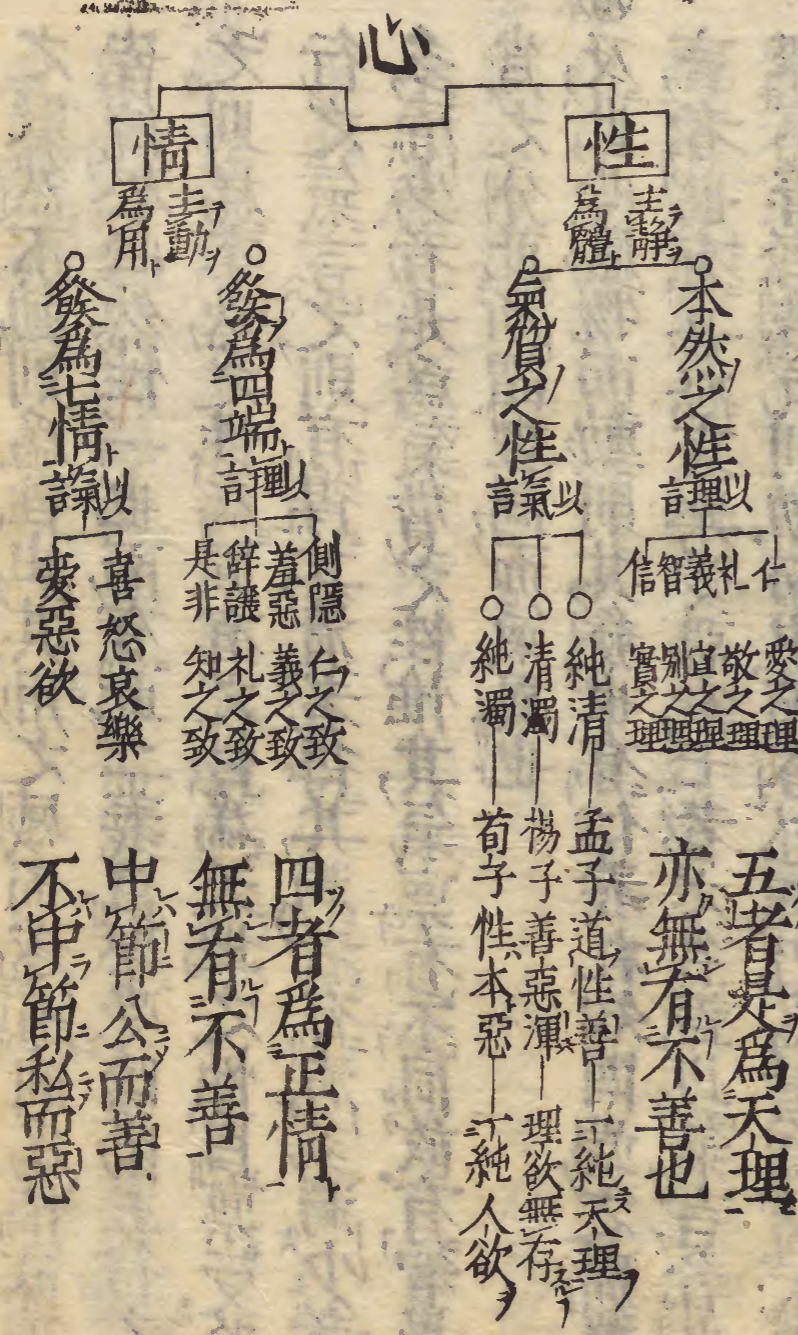 心
性
主靜
爲體
本然之性
以理言
仁 愛之理
礼 敬之理
義 宜之理
智 別之理
信 實之理
五者是爲天理
亦無有不善也
氣質之性
以氣言
純清 孟子道性善 一純天理
清濁 楊子善惡渾 理欲無存
純濁 荀子性本惡 一純人欲
情
主動
爲用
發爲四端
以理言
側隱 仁之致
羞惡 義之致
辞讓 礼之致
是非 知之致
四者爲正情
無有不善
發爲七情
以氣言
喜怒哀樂
愛惡欲
中節公而善
不中節私而惡